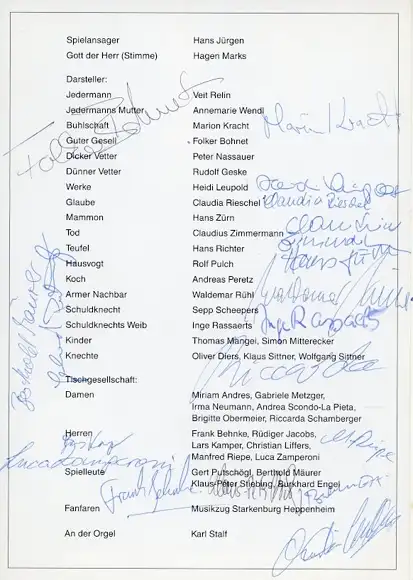 Spielansager Hans Jürgen
Gott der Herr (Stimme) Hagen Marks
Darsteller:
Jedermann Veit Relin
Jedermanns Mutter Annemarie Wendl
Buhlschaft Marion Kracht
Marion Kracht
Guter Gesell Folker Bohnet
Folker Bohnet
Dicker Vetter Peter Nassauer
Dünner Vetter Rudolf Geske
Werke Heidi Leupold
Heidi Leupold
Glaube Claudia Rieschel
Claudia Rieschel
Mammon Hans Zürn
Tod Claudius Zimmermann
Claudius Zimmermann
Teufel Hans Richter
Hausvogt Rolf Pulch
Koch Andreas Peretz
Armer Nachbar Waldemar Rühl
Waldemar Rühl
Schuldknecht Sepp Scheepers
Schuldknechts Weib Inge Rassaerts
Inge Rassaerts
Kinder Thomas Mangei, Simon Mitterecker
Knechte Oliver Diers, Klaus Sittner, Wolfgang Sittner
Riccarda
Tischgesellschaft:
Damen Miriam Andres, Gabriele Metzger,
Irma Neumann, Andrea Scondo-La Pieta,
Brigitte Obermeier, Riccarda Schamberger
Herren Frank Behnke, Rüdiger Jacobs,
Lars Kamper, Christian Liffers,
Manfred Riepe, Luca Zamperoni
Luca Zamperoni
Spielleute Gert Putschögl, Berthold Mäurer
Berthold Mäurer
Klaus-Peter Stiebing, Burkhard Engel
Frank Behnke
Fanfaren Musikzug Starkenburg Heppenheim
An der Orgel Karl Stalf